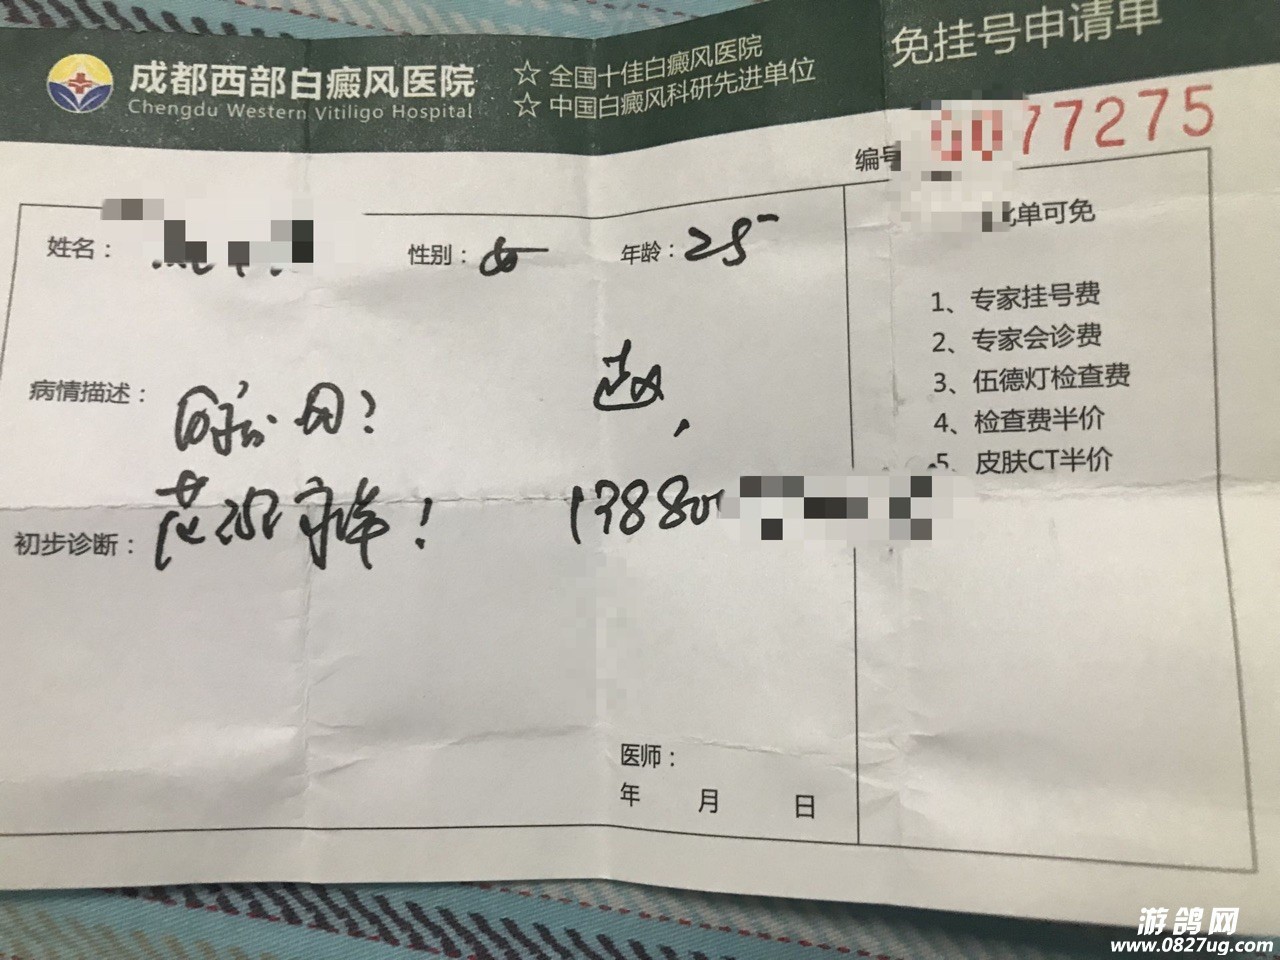 成都西部白癜风医院
Chengdu Western Vitiligo Hospital
☆ 全国十佳白癜风医院
☆ 中国白癜风科研先进单位
免挂号申请单
编号 0077275
姓名：
性别：女
年龄：25
此单可免
1、专家挂号费
2、专家会诊费
3、伍德灯检查费
4、检查费半价
5、皮肤CT半价
病情描述：
初步诊断：
13880
医师：
年 月 日
游鸽网
www.0827ug.com